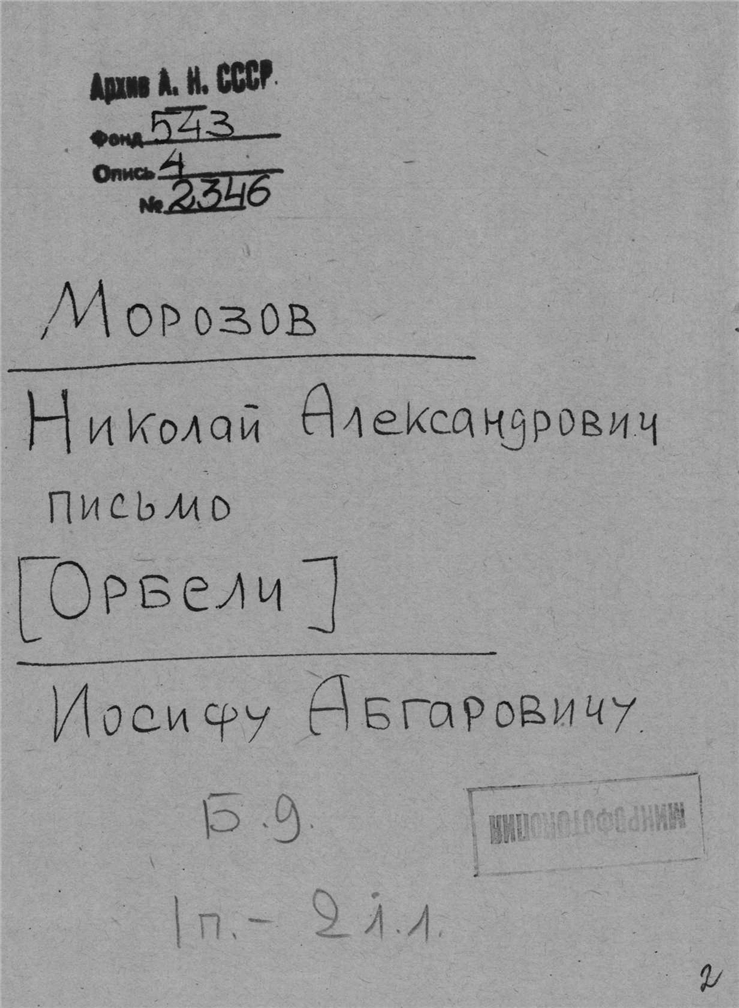 Архив А. Н. СССР.
Фонд 543
Опись 4
№ 2346
Морозов
Николай Александрович
письмо
[Орбели]
Иосифу Абгаровичу.
Б.д.
МИКРОФОТОКОПИИ
1п. – 2 л.л.
2